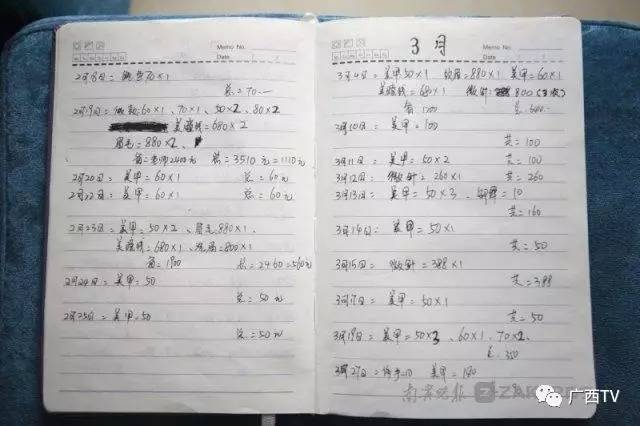 Memo No.
Date
2月18日= 70×1
总=70.—
2月19日= 60×1、70×1、50×2、80×2
美瞳线=680×2
眉毛=880×2、
2400元 总=3510元=1110元
2月20日=美甲=60×1 总=60元
2月22日=美甲=60×1 总=60元
2月23日=美甲=50×2、眉毛880×1、
美瞳线=680×1、 800×1
=1900 总=2460=560元
2月24日=美甲=50
总=50元
2月25日=美甲=50
总=50元
Memo No.
Date
3月
3月4日=美甲50×1 880×1 美甲=60×1
美瞳线=680×1 微针 800
3月10日=美甲=100
共=100
3月11日=美甲=50×2
共=100
3月12日=微针=260×1
共=260
3月13日=美甲=50×3、 =10
共=160
3月14日=美甲=50×1
共=50
3月15日=微针=388×1
共=388
3月17日=美甲=50×1
共=50
3月19日=美甲=50×3、60×1、70×2
总350
3月27日= 10 美甲=180
南宁晚报
ZAKER
广西TV